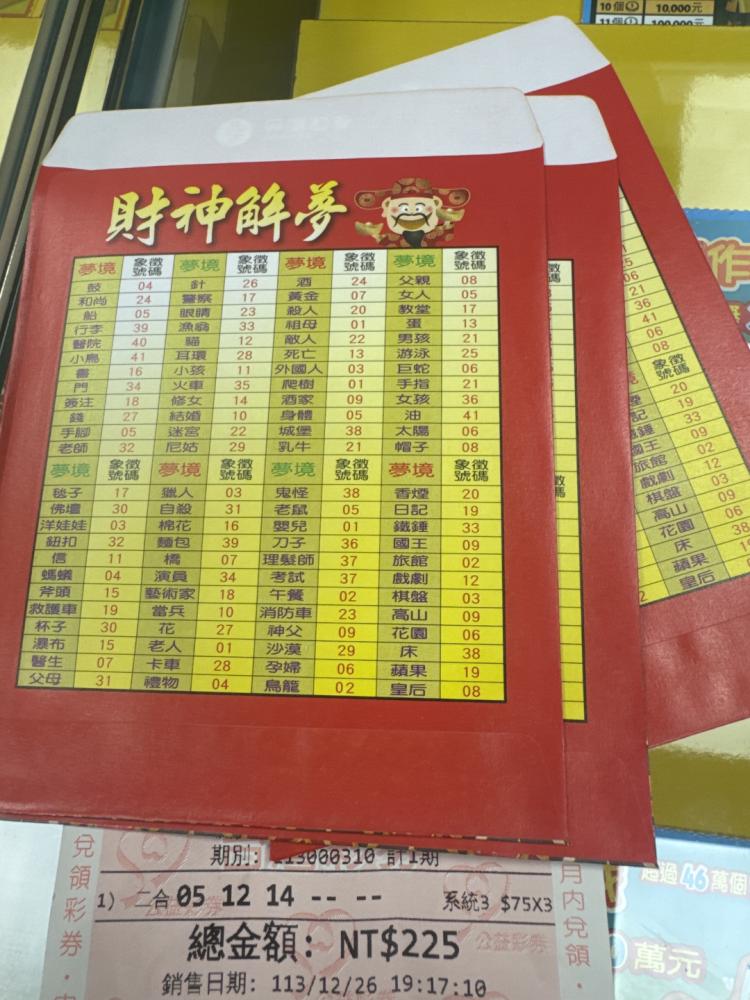 10個① 10,000元
11個① 100,000元
財神解夢
夢境 象徵號碼 夢境 象徵號碼 夢境 象徵號碼 夢境 象徵號碼
鼓 04 針 26 酒 24 父親 08
和尚 24 警察 17 黃金 07 女人 05
船 05 眼睛 23 殺人 20 教堂 17
行李 39 漁翁 33 祖母 01 蛋 13
醫院 40 貓 12 敵人 22 男孩 21
小鳥 41 耳環 28 死亡 13 游泳 25
書 16 小孩 11 外國人 03 巨蛇 06
門 34 火車 35 爬樹 01 手指 21
簽注 18 修女 14 酒家 09 女孩 36
錢 27 結婚 10 身體 05 油 41
手腳 05 迷宮 22 城堡 38 太陽 06
老師 32 尼姑 29 乳牛 21 帽子 08
夢境 象徵號碼 夢境 象徵號碼 夢境 象徵號碼 夢境 象徵號碼
毯子 17 獵人 03 鬼怪 38 香煙 20
佛壇 30 自殺 31 老鼠 05 日記 19
洋娃娃 03 棉花 16 嬰兒 01 鐵錘 33
鈕扣 32 麵包 39 刀子 36 國王 09
信 11 橋 07 理髮師 37 旅館 02
螞蟻 04 演員 34 考試 37 戲劇 12
斧頭 15 藝術家 18 午餐 02 棋盤 03
救護車 19 當兵 10 消防車 23 高山 09
杯子 30 花 27 神父 09 花園 06
瀑布 15 老人 01 沙漠 29 床 38
醫生 07 卡車 28 孕婦 06 蘋果 19
父母 31 禮物 04 烏龍 02 皇后 08
作
21
36
41
06
08
象徵號碼
20
19
國王 33
旅館 02
戲劇 12
棋盤 03
高山 09
花園 06
床 38
蘋果
皇后
期別: 113000310 計1期
1) 二合 05 12 14 -- -- 系統3 $75X3
總金額: NT$225
銷售日期: 113/12/26 19:17:10
兌領彩券.
月內兌領.
公益彩券
超過46萬個
萬元